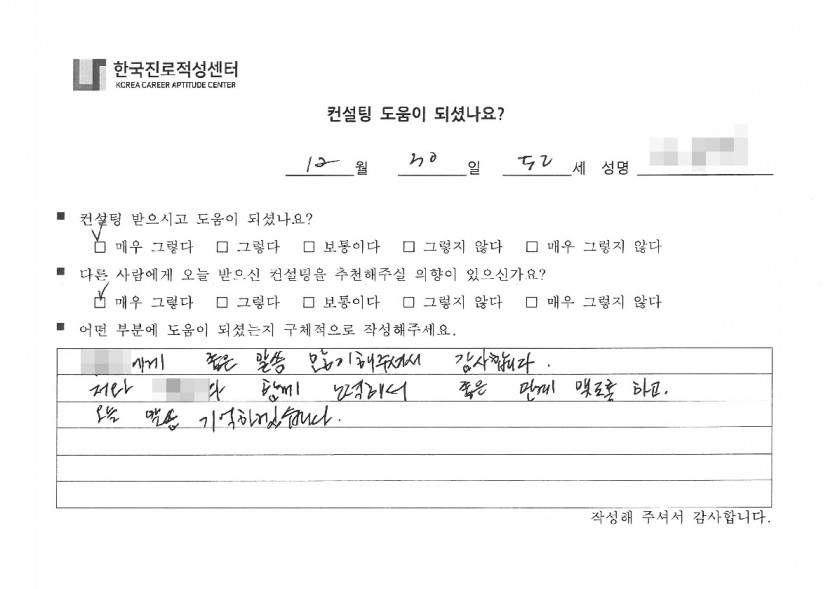 한국진로적성센터
KOREA CAREER APTITUDE CENTER
컨설팅 도움이 되셨나요?
12 월 30 일 52 세 성명
■ 컨설팅 받으시고 도움이 되셨나요?
□ 매우 그렇다 □ 그렇다 □ 보통이다 □ 그렇지 않다 □ 매우 그렇지 않다
■ 다른 사람에게 오늘 받으신 컨설팅을 추천해주실 의향이 있으신가요?
□ 매우 그렇다 □ 그렇다 □ 보통이다 □ 그렇지 않다 □ 매우 그렇지 않다
■ 어떤 부분에 도움이 되셨는지 구체적으로 작성해주세요.
에게 좋은 말씀 많이해주셔서 감사합니다.
저와 와 함께 노력해서 좋은 관계 맺도록 하고.
오늘 말씀 기억하겠습니다.
작성해 주셔서 감사합니다.